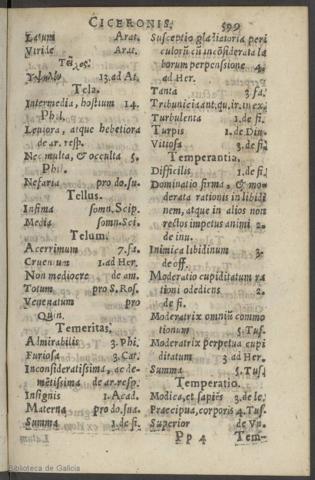 CICERONIS. 599
Latum Arat.
Viride Arat.
13. ad At.
Tela.
Intermedia, hostium 14.
Phil.
Leuiora, atque hebetiora
de ar. resp.
Nec multa, & occulta 5.
Phil.
Nefaria pro do. su.
Tellus.
Infima somn. Scip.
Media somn. Sci.
Telum.
Acerrimum 7. fa.
Cruentum 1. ad Her.
Non mediocre de am.
Totum pro S. Ros.
Venenatum pro
Quin.
Temeritas.
Admirabilis 3. Phi.
Furiosa 3. Cat.
Inconsideratissima, ac de-
mētissima de ar. resp.
Insignis 1. Acad.
Materna pro do. sua.
Summa 1. de fi.
Susceptio gladiatoria peri
culorū cū incōsiderata la
borum perpensione 4.
ad Her.
Tanta 3. fa.
Tribunicia ant. qu. ir. in ex.
Turbulenta 1. de fi.
Turpis 1. de Diu.
Vitiosa 3. de fi.
Temperantia.
Difficilis 1. de fi.
Dominatio firma, & mo-
derata rationis in libidi
nem, atque in alios non
rectos impetus animi 2.
de inu.
Inimica libidinum 3.
de off.
Moderatio cupiditatum ra
tioni obediens 2.
de fi.
Moderatrix omniū commo
tionum 5. Tus.
Moderatrix perpetua cupi
ditatum 3 ad Her.
Summa 5. Tus.
Temperatio.
Modica, et sapiēs 3. de le.
Praecipua, corporis 4. Tus.
Superior de Vn.
Pp 4 Tem-
Biblioteca de Galicia